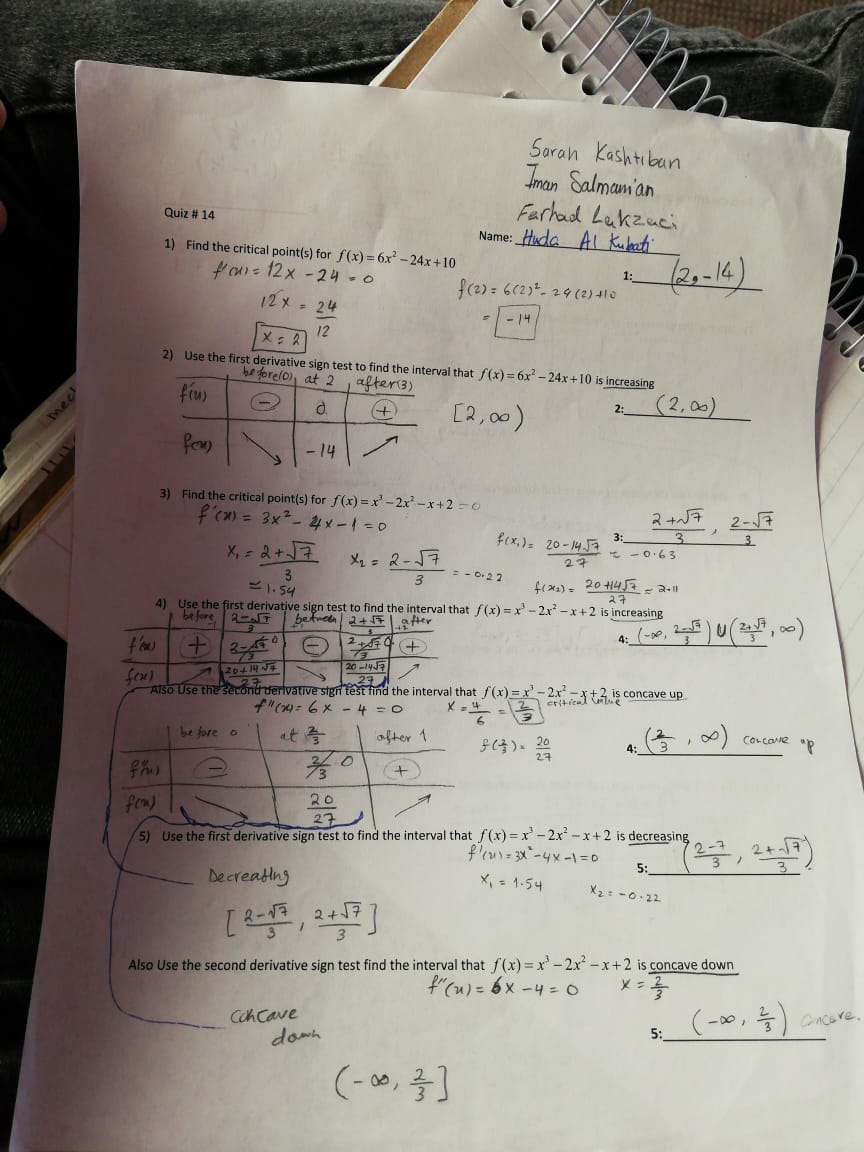 Sarah Kashtiban
Iman Salmanian
Farhad Lakzaei
Quiz # 14
Name: Huda Al Kubati
1) Find the critical point(s) for f(x) = 6x² – 24x + 10
1: (2, -14)
f'(x) = 12x - 24 = 0
f(2) = 6(2)² - 24(2) + 10
12x = 24
12
= -14
x = 2
2) Use the first derivative sign test to find the interval that f(x) = 6x² – 24x + 10 is increasing
before(0) at 2 after(3)
f'(x) - 2 +
[2, ∞)
2: (2, ∞)
f(x) ↘ -14 ↗
3) Find the critical point(s) for f(x) = x³ – 2x² – x + 2 = 0
f'(x) = 3x² - 4x - 1 = 0
3: 2+√7/3, 2-√7/3
x₁ = 2+√7/3 x₂ = 2-√7/3 = -0.22
f(x₁) = 20-14√7/27 ≈ -0.63
≈ 1.54
f(x₂) = 20+14√7/27 ≈ 2.11
4) Use the first derivative sign test to find the interval that f(x) = x³ – 2x² – x + 2 is increasing
before 2-√7/3 between 2+√7/3 after
f'(x) + 0 - 0 +
4: (-∞, 2-√7/3) ∪ (2+√7/3, ∞)
f(x) ↗ 20+14√7/27 ↘ 20-14√7/27 ↗
Also Use the second derivative sign test find the interval that f(x) = x³ – 2x² – x + 2 is concave up
f''(x) = 6x - 4 = 0 x = 4/6 = 2/3 critical value
before 0 at 2/3 after 1
f(2/3) = 20/27
4: (2/3, ∞) concave up
f''(x) - 0 +
f(x) ↘ 20/27 ↗
5) Use the first derivative sign test to find the interval that f(x) = x³ – 2x² – x + 2 is decreasing
f'(x) = 3x² - 4x - 1 = 0
5: (2-7/3, 2+√7/3)
Decreating
x₁ = 1.54 x₂ = -0.22
[2-√7/3, 2+√7/3]
Also Use the second derivative sign test find the interval that f(x) = x³ – 2x² – x + 2 is concave down
f''(x) = 6x - 4 = 0 x = 2/3
concave
down
5: (-∞, 2/3) concave.
(-∞, 2/3]